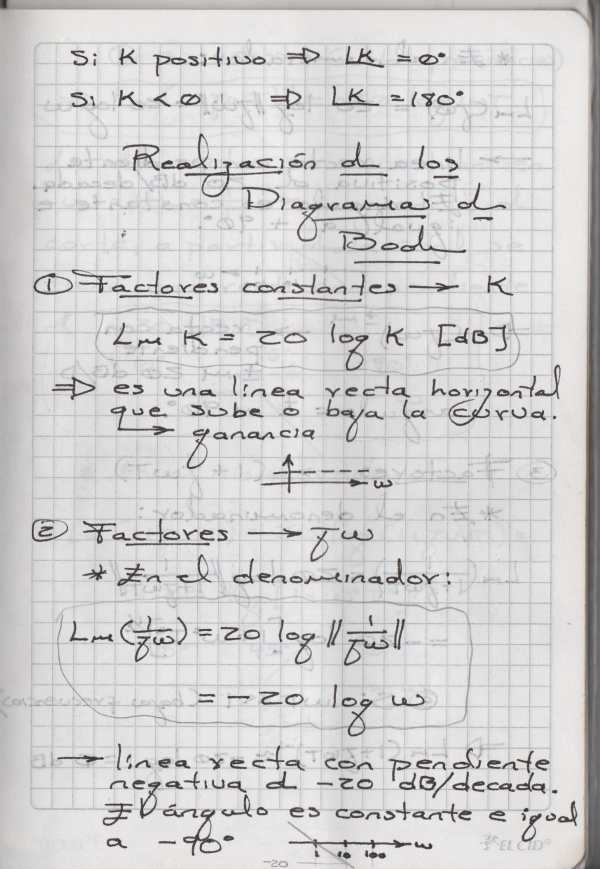 Si K positivo ⇒ ∠K = 0°
Si K < 0 ⇒ ∠K = 180°
Realización d los
Diagramas d
Bode
① Factores constantes → K
Lm K = 20 log K [dB]
⇒ es una línea recta horizontal
que sube o baja la curva.
↳ ganancia
ω
② Factores → jω
* En el denominador:
Lm (1/jω) = 20 log ||1/jω||
= -20 log ω
→ línea recta con pendiente
negativa d -20 dB/decada.
El ángulo es constante e igual
a -90°
1 10 100 ω
-20
EL CID